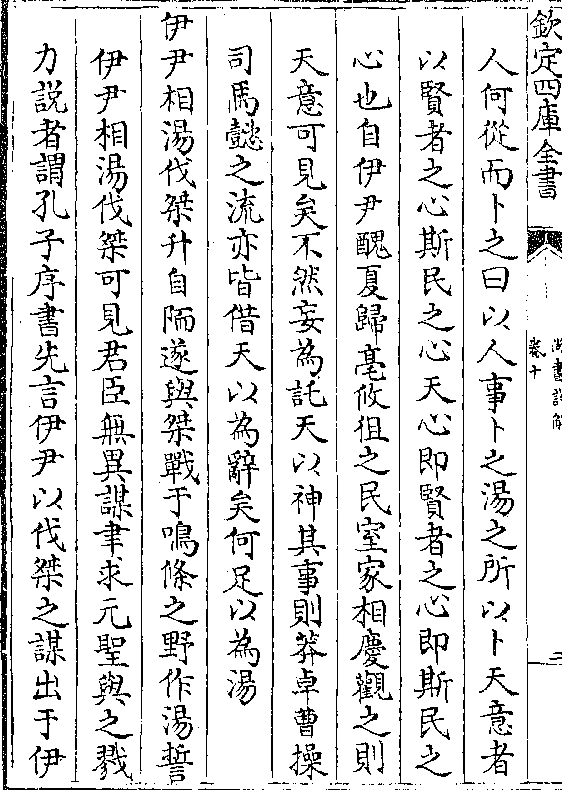 欽定四庫全書
尚書詳解
卷十
人何從而卜之曰以人事卜之湯之所以卜天意者
以賢者之心斯民之心天心即賢者之心即斯民之
心也自伊尹醜夏歸亳攸徂之民室家相慶觀之則
天意可見矣不然妄為託天以神其事則莽卓曹操
司馬懿之流亦皆借天以為辭矣何足以為湯
伊尹相湯伐桀升自陑遂與桀戰于鳴條之野作湯誓
伊尹相湯伐桀可見君臣無異謀聿求元聖與之戮
力説者謂孔子序書先言伊尹以伐桀之謀出于伊